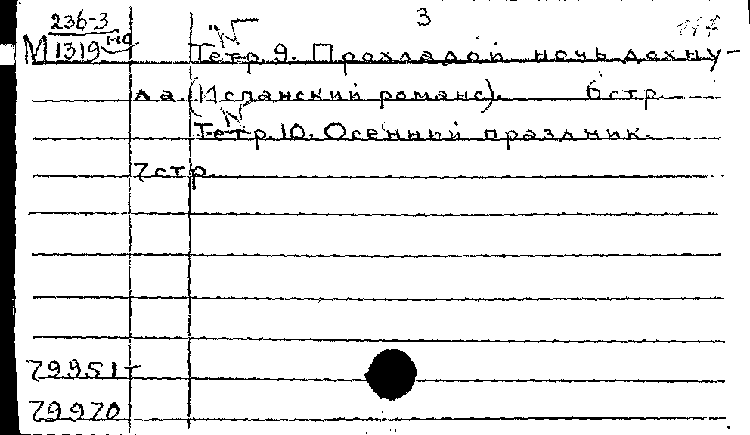 236-3 3
М1319
Тетр. 9. Прохладой ночь дохну-
ла. (Испанский романс). 6 стр.
Тетр. 10. Осенний праздник.
7 стр.
79951-
79970